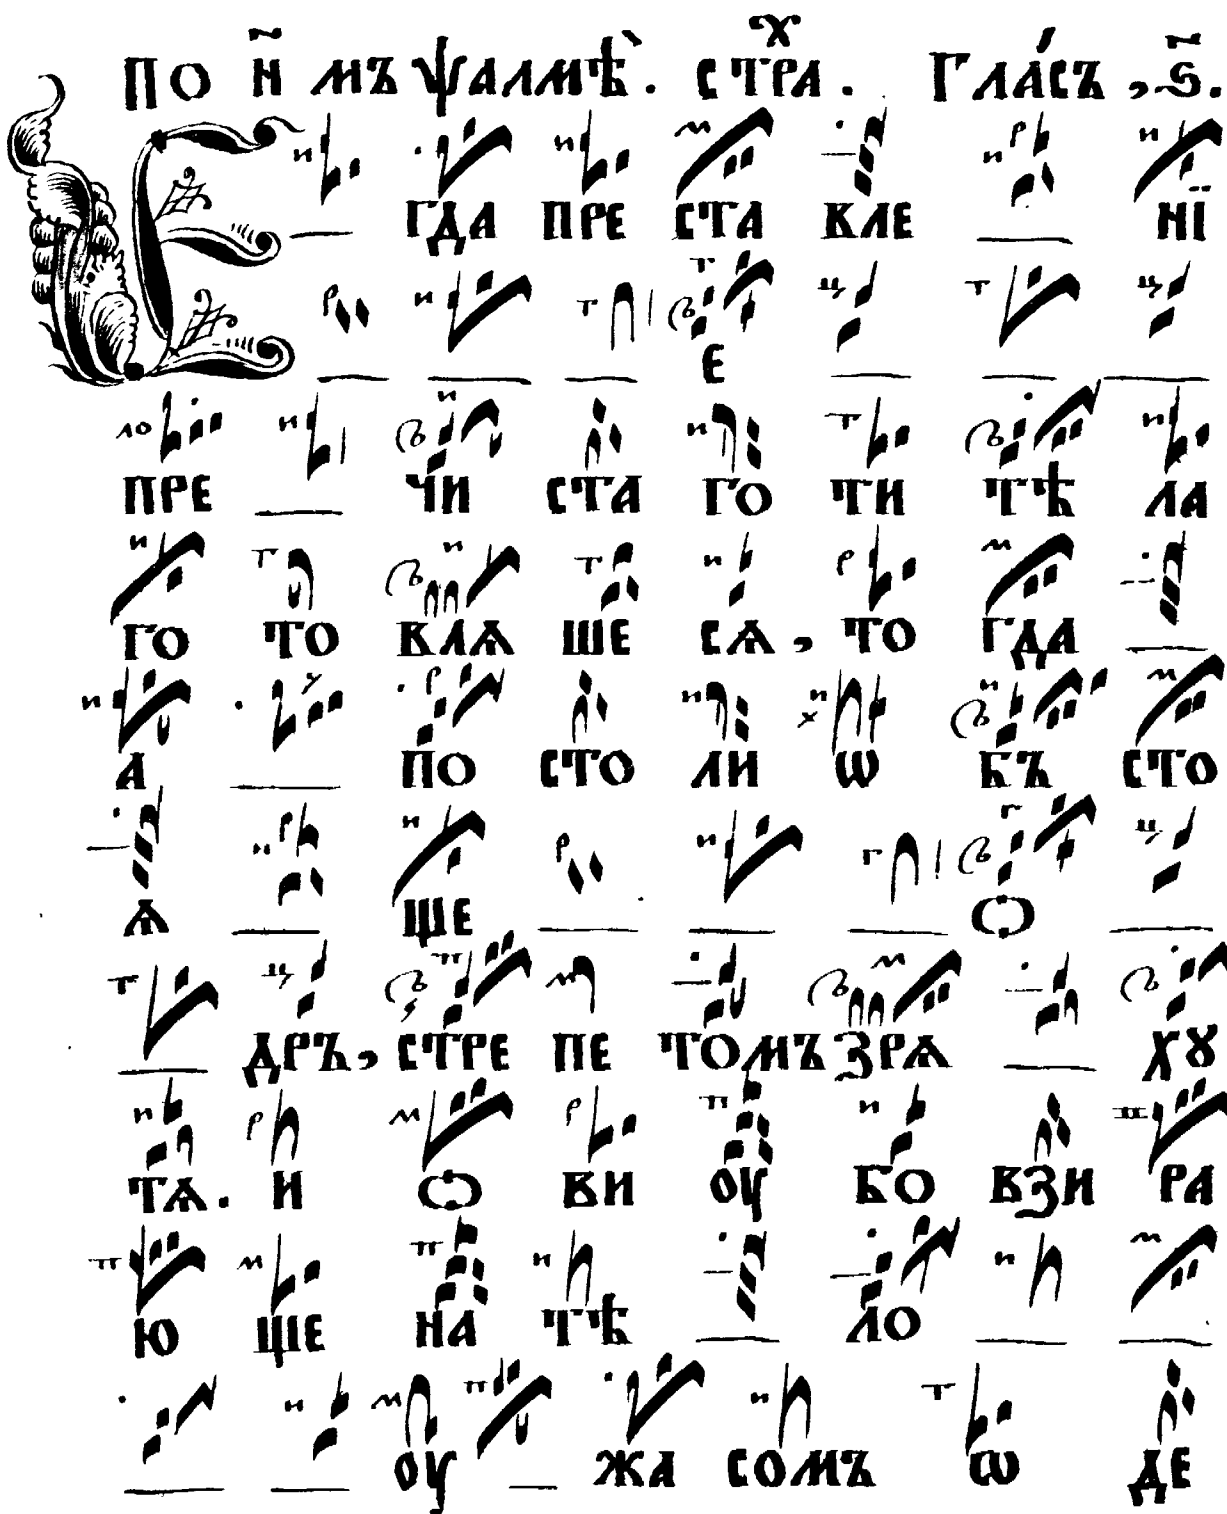 по н҃ мъ ѱалмѣ̀. стх҃ра. гла́съ, ѕ҃.
Е гда пре ста вле нї
е
пре чи ста го ти тѣ ла
го то влѧ ше сѧ, то гда
а по сто ли ѡ бъ сто
ѧ ще ѻ
дръ, стре пе томъ зрѧ хꙋ
тѧ. и ѻ ви оу бо взи ра
ю ще на тѣ ло
оу жа сомъ ѡ де